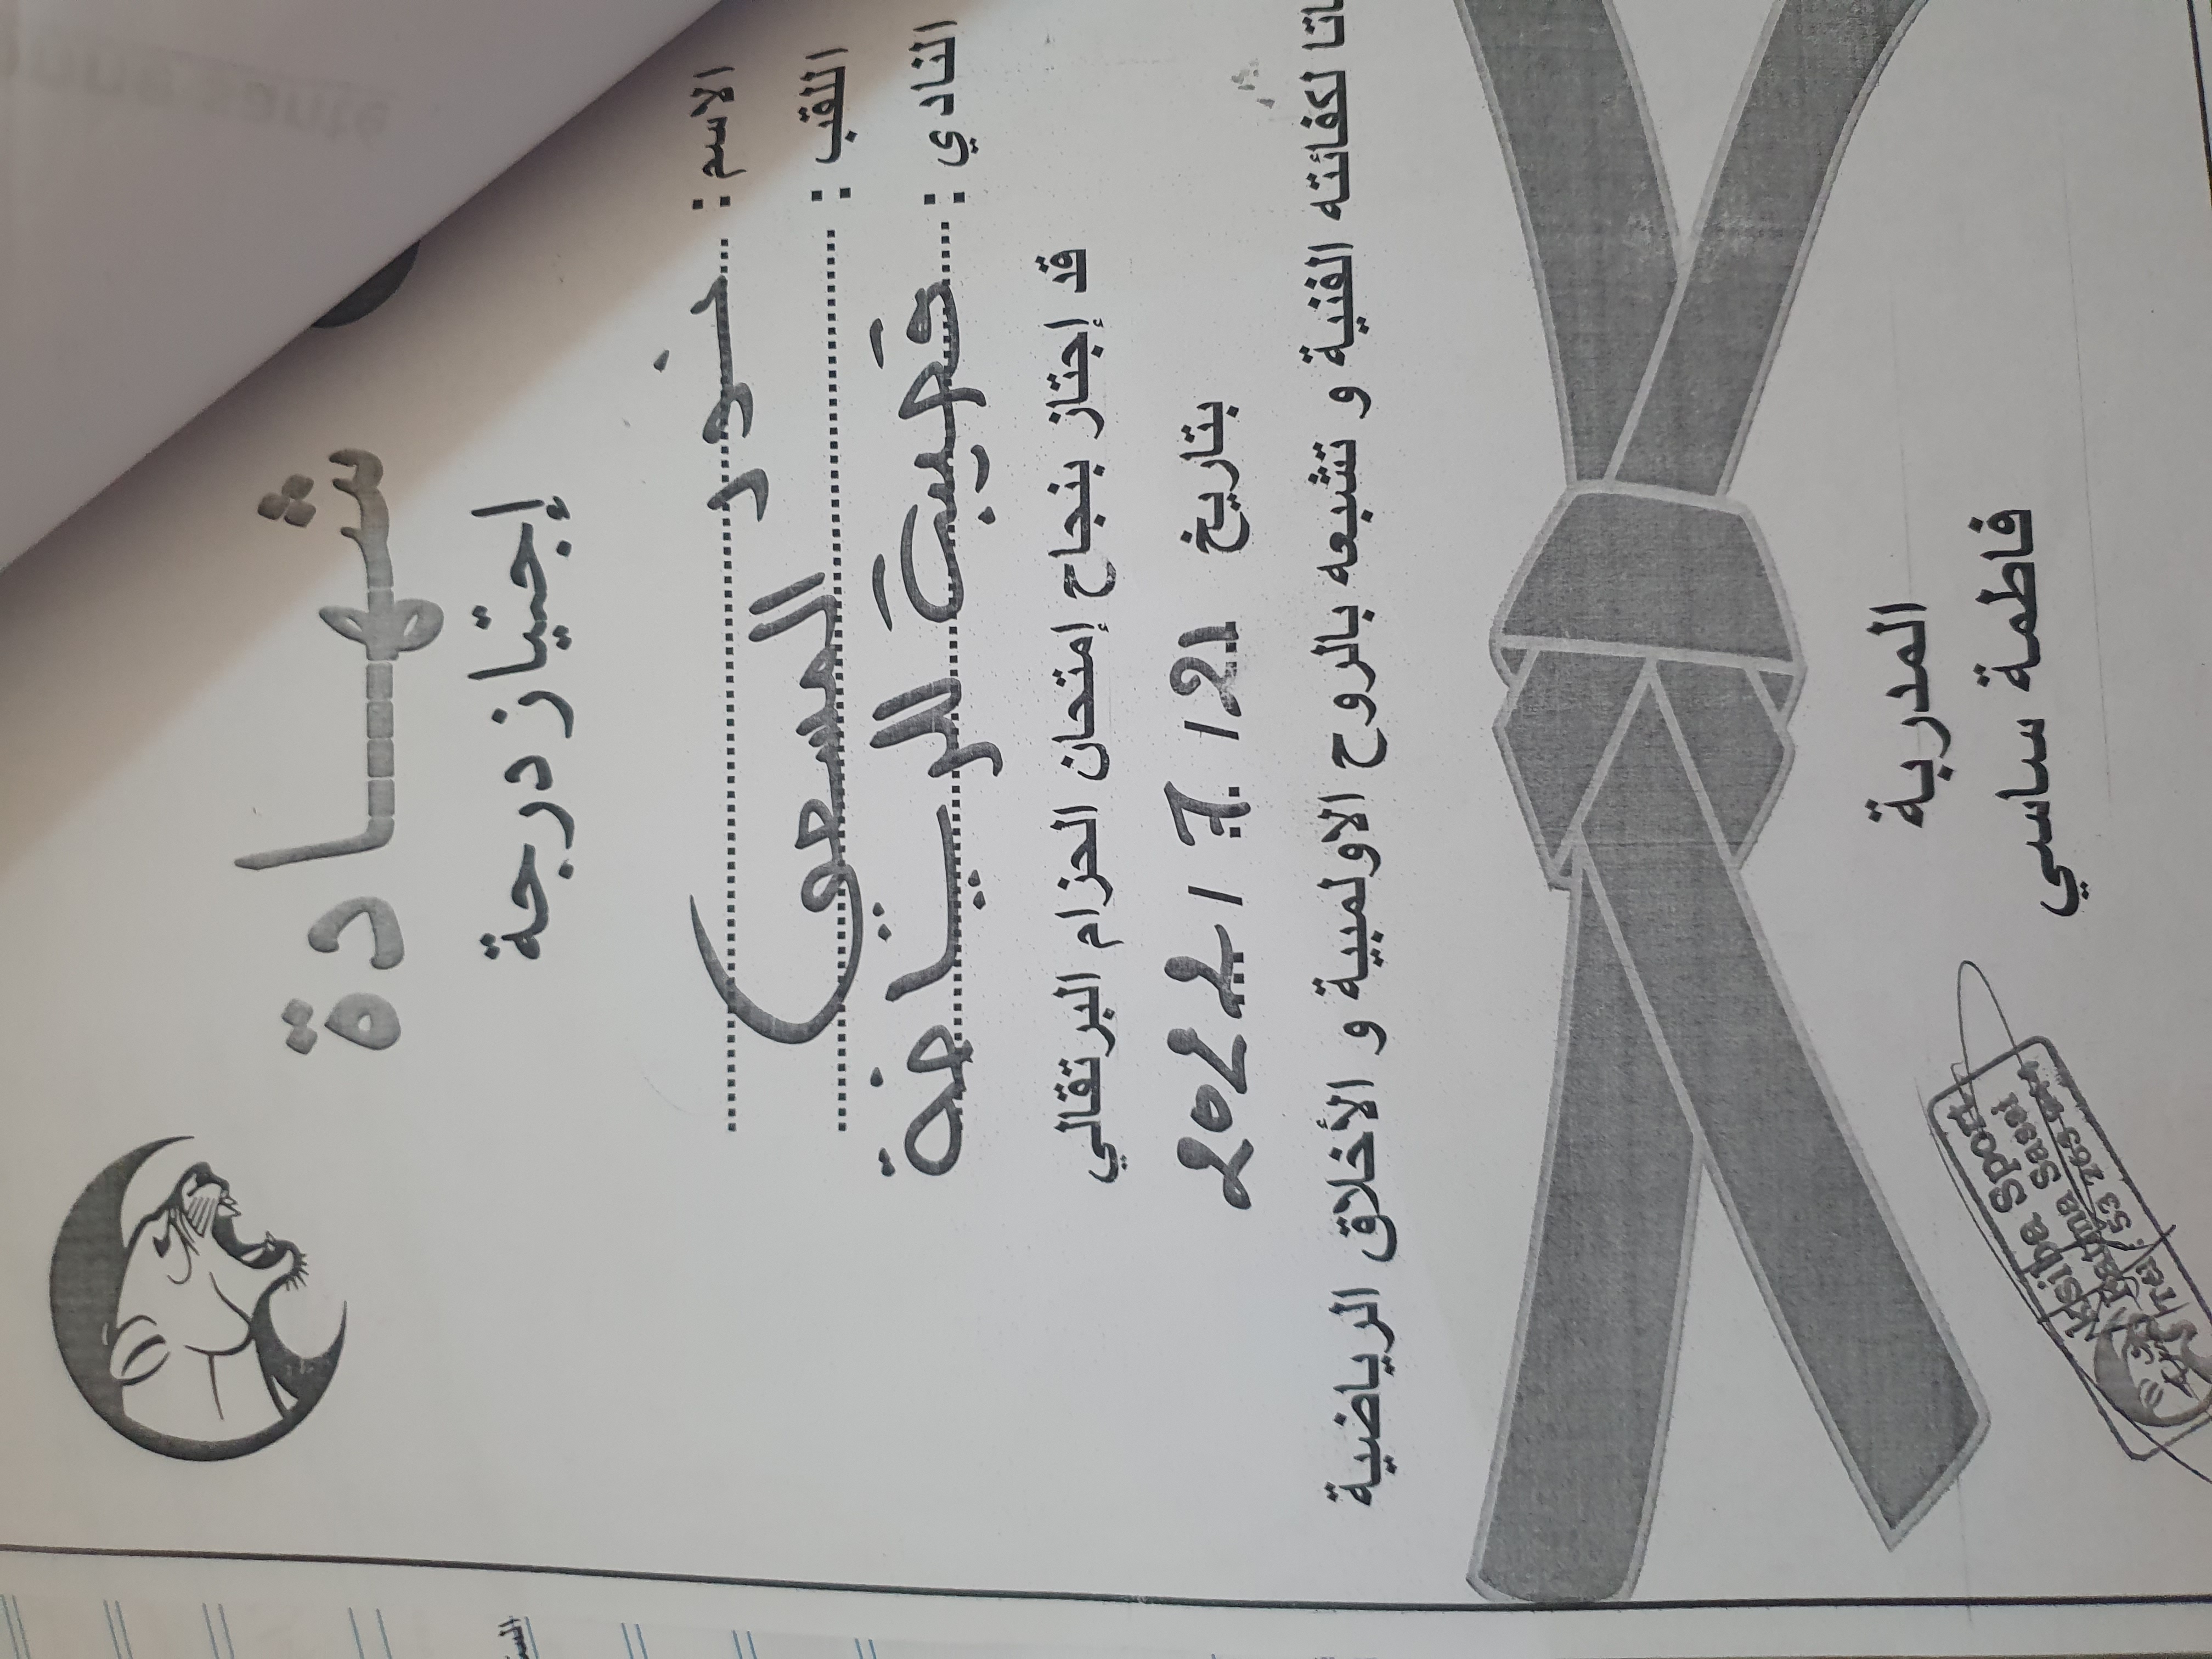 شهادة
إجتياز درجة
الاسم :
اللقب : المسعو
النادي : قصيبة للرياضة
قد إجتاز بنجاح إمتحان الحزام البرتقالي
بتاريخ 21 / 7 / 2022
لكفائته الفنية و تشبعه بالروح الاولمبية و الأخلاق الرياضية
المدربة
فاطمة ساسي
Ksiba Sport
Fatma Sassi
Tel : 53 765